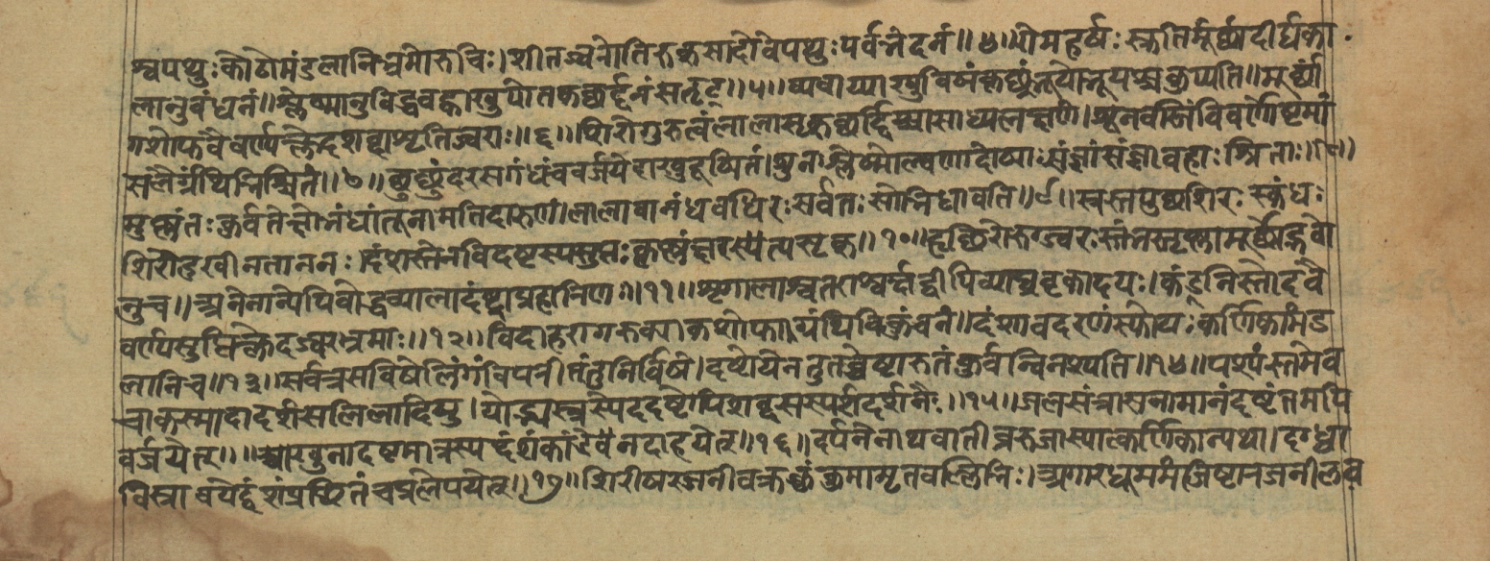 श्वपथुः कोठोमंडलानिभ्रमोरुचिः। शीतज्वरोतिरुक्सादोवेपथुःपर्वभेदनं॥४॥रोमहर्षःस्रुतिर्मूर्छादीर्घका
लानुबंधनं॥श्लेष्मानुविद्धबह्वाखुपोतकछर्द्दनंसतृट्॥५॥व्यवाय्याखुविषंकृछ्रंभूयोभूयश्चकुप्यति॥मूर्छां
गशोफवैवर्ण्यक्लेदशब्दाश्रुतिज्वराः॥६॥शिरोगुरुत्वंलालासृक्छर्द्दिश्चासाध्यलक्षणं।शूनवस्तिंविवर्णोष्टमा
संलैर्ग्रंथिभिश्चितं॥७॥छुछुंदरसगंधंचवर्जयेदाखुदूषितं।शुनःश्लेष्मोल्बणादोषाःसंज्ञांसंज्ञावहाःश्रिताः॥८॥
मुष्णंतःकुर्वतेक्षोभंधातूनामतिदारुणं।लालावानंधबधिरःसर्वतःसोभिधावति॥९॥स्रस्तपुछशिरःस्कंधः
शिरोदुःखीनताननः।दंशस्तेनविदष्टस्यसुप्तःकृष्णंक्षरत्यसृक्॥१०॥हृछिरोरुग्ज्वरःस्तंभस्तृष्णामूर्छोद्भवो
नुच॥अनेनान्येपिबोद्धव्यालादंष्ट्राप्रहारिणः॥११॥शृगालाश्वतराश्वर्क्षद्वीपिव्याघ्रवृकादयः।कंडूनिस्तोदवै
वर्ण्यसुप्तिक्लेदज्वरभ्रमाः॥१२॥विदाहरागरुक्पाकशोफाग्रंथिविकुंचनं॥दंशावदरणंस्फोटाःकर्णिकामंड
लानिच॥१३॥सर्वत्रसविषेलिंगंविपरीतंतुनिर्विषे।दष्टोयेनतुतच्चेष्टारुतंकुर्वन्विनश्यति॥१४॥पश्यंस्तमेव
चाकस्मादादर्शसलिलादिषु।योद्भ्यस्त्रस्येददष्टोपिशब्दसंस्पर्शदर्शनैः॥१५॥जलसंत्रासनामानंदष्टंतमपि
वर्जयेत्॥॥आखुनादष्टमात्रस्यदंशंकांडेनदाहयेत्॥१६॥दर्पणेनाथवातीव्ररुजास्यात्कर्णिकान्यथा।दग्धं
विस्रावयेद्दंशंप्रछितंचप्रलेपयेत्॥१७॥शिरीषरजनीवक्रकुंकुमामृतवल्लिभिः।अगारधूममंजिष्टारजनीलव